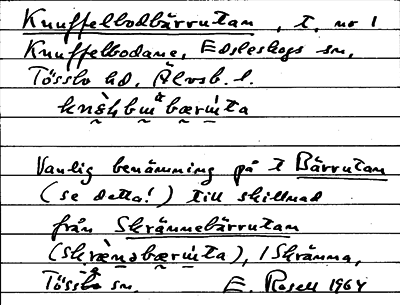 Knuffelbodbärrutan, t. nr 1
Knuffelbodane, Edsleskogs sn,
Tössbo hd, Älvsb. l.
Vanlig benämning på t Bärrutan
(se detta!) till skillnad
från Skrännebärrutan
(skrænəbærɯ̀ta), i Skränna,
Tössbo sn. E. Rosell 1964